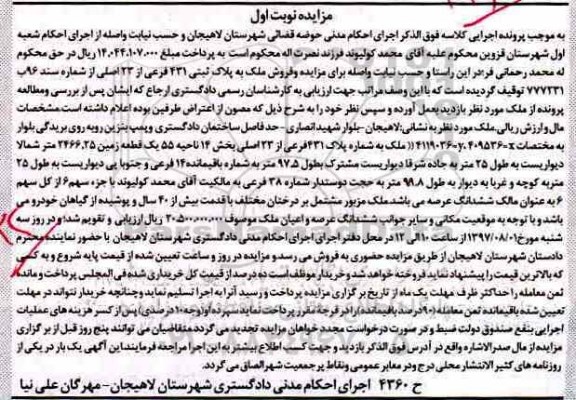 مزایده نوبت اول
به موجب پرونده اجرایی کلاسه فوق الذکر اجرای احکام مدنی حوضه قضائی شهرستان لاهیجان و حسب نیابت واصله از اجرای احکام شعبه
اول شهرستان قزوین محکوم علیه آقای محمد کولیوند فرزند نصرت اله محکوم است به پرداخت مبلغ ۱۴.۰۴۴.۱۰۷.۰۰۰ ریال در حق محکوم
له محمد رحمانی فر:در این راستا و حسب نیابت واصله برای مزایده وفروش ملک به پلاک ثبتی ۴۳۱ فرعی از ۲۳ اصلی از شماره سند ۹۶ب
۷۷۷۲۳۱ توقیف گردیده است که با این وصف مراتب جهت ارزیابی به کارشناسان رسمی دادگستری ارجاع که ایشان پس از بررسی ومطالعه
پرونده از ملک مورد نظر بازدید بعمل آورده و سپس نظر خود را به شرح ذیل که مصون از اعتراض طرفین بوده اعلام داشته است.مشخصات
مال وارزش ریالی.ملک مورد نظر به نشانی:لاهیجان -بلوار شهید انصاری - حد فاصل ساختمان دادگستری وپمپ بنزین روبه روی بریدگی بلوار
به مختصات x-۴۰۹۵۳۶ .y-۴۱۱۹۰۳۶ (( ملک به شماره پلاک ۴۳۱فرعی از ۲۳ اصلی بخش ۱۴ ناحیه ۵۵ یک قطعه زمین ۲۴۶۶.۲۵ متر شمالا
دیواریست به طول ۲۵ متر به جاده شرقا دیواریست مشترک بطول ۹۷.۵ متر به شماره باقیمانده۱۴ فرعی و جنوبا پی دیواریست به طول ۲۵
متربه کوچه و غربا به دیوار به طول ۹۹.۸ متر به حجت دوستدار شماره ۳۸ فرعی به مالکیت آقای محمد کولیوند با جزء سهم۶ از کل سهم
۶ به عنوان مالک ششدانگ عرصه می باشد.ملک مزبور مشتمل بر درختان مختلف با قدمت بیش از ۴۰ سال و پوشیده از گیاهان خودرو می
باشد و با توجه به موقعیت مکانی و سایر جوانب ششدانگ عرصه و اعیان ملک موصوف ۲۰۵۰۰.۰۰۰.۰۰۰ ریال ارزیابی و تقویم شد؛و در روز سه
شنبه مورخ۱۳۹۷/۰۸/۰۱ از ساعت ۱۰ الی ۱۲ در محل دفتر اجرای اجرای احکام مدنی دادگستری شهرستان لاهیجان با حضور نماینده محترم
دادستان شهرستان لاهیجان از طریق مزایده حضوری به فروش می رسد و مزایده در روز و ساعت تعیین شده از قیمت پایه شروع و به کسی
که بالاترین قیمت را پیشنهاد نماید فروخته خواهد شد و خریدار موظف است ده درصد از قیمت کل خریداری شده فی المجلس پرداخت و مانده
ثمن معامله را حداکثر ظرف مهلت یک ماه از تاریخ برگزاری مزایده پرداخت و رسید آنرا به اجرا تسلیم نماید وچنانچه خریدار نتواند در مهلت
تعیین شده باقیمانده ثمن معامله (۹۰درصد باقیمانده)رادر فرجه مقرر پرداخت نماید سپرده او(وجه۱۰ درصدی) پس از کسر هزینه های عملیات
اجرایی بنفع صندوق دولت ضبط و در صورت درخواست مجدد خواهان مزایده تجدید می گردد متقاضیان می توانند پنج روز قبل از برگزاری
مزایده از مال صدرالاشاره واقع در آدرس فوق الذکر بازدید و جهت کسب اطلاع بیشتر به این اجرا مراجعه فرمایند این آگهی یک بار در یکی از
روزنامه های کثیر الانتشار محلی درج ودر معابر عمومی ونقاط پر جمعیت شهر الصاق می گردد.
ح ۴۳۶۰ اجرای احکام مدنی دادگستری شهرستان لاهیجان-مهرگان علی نیا